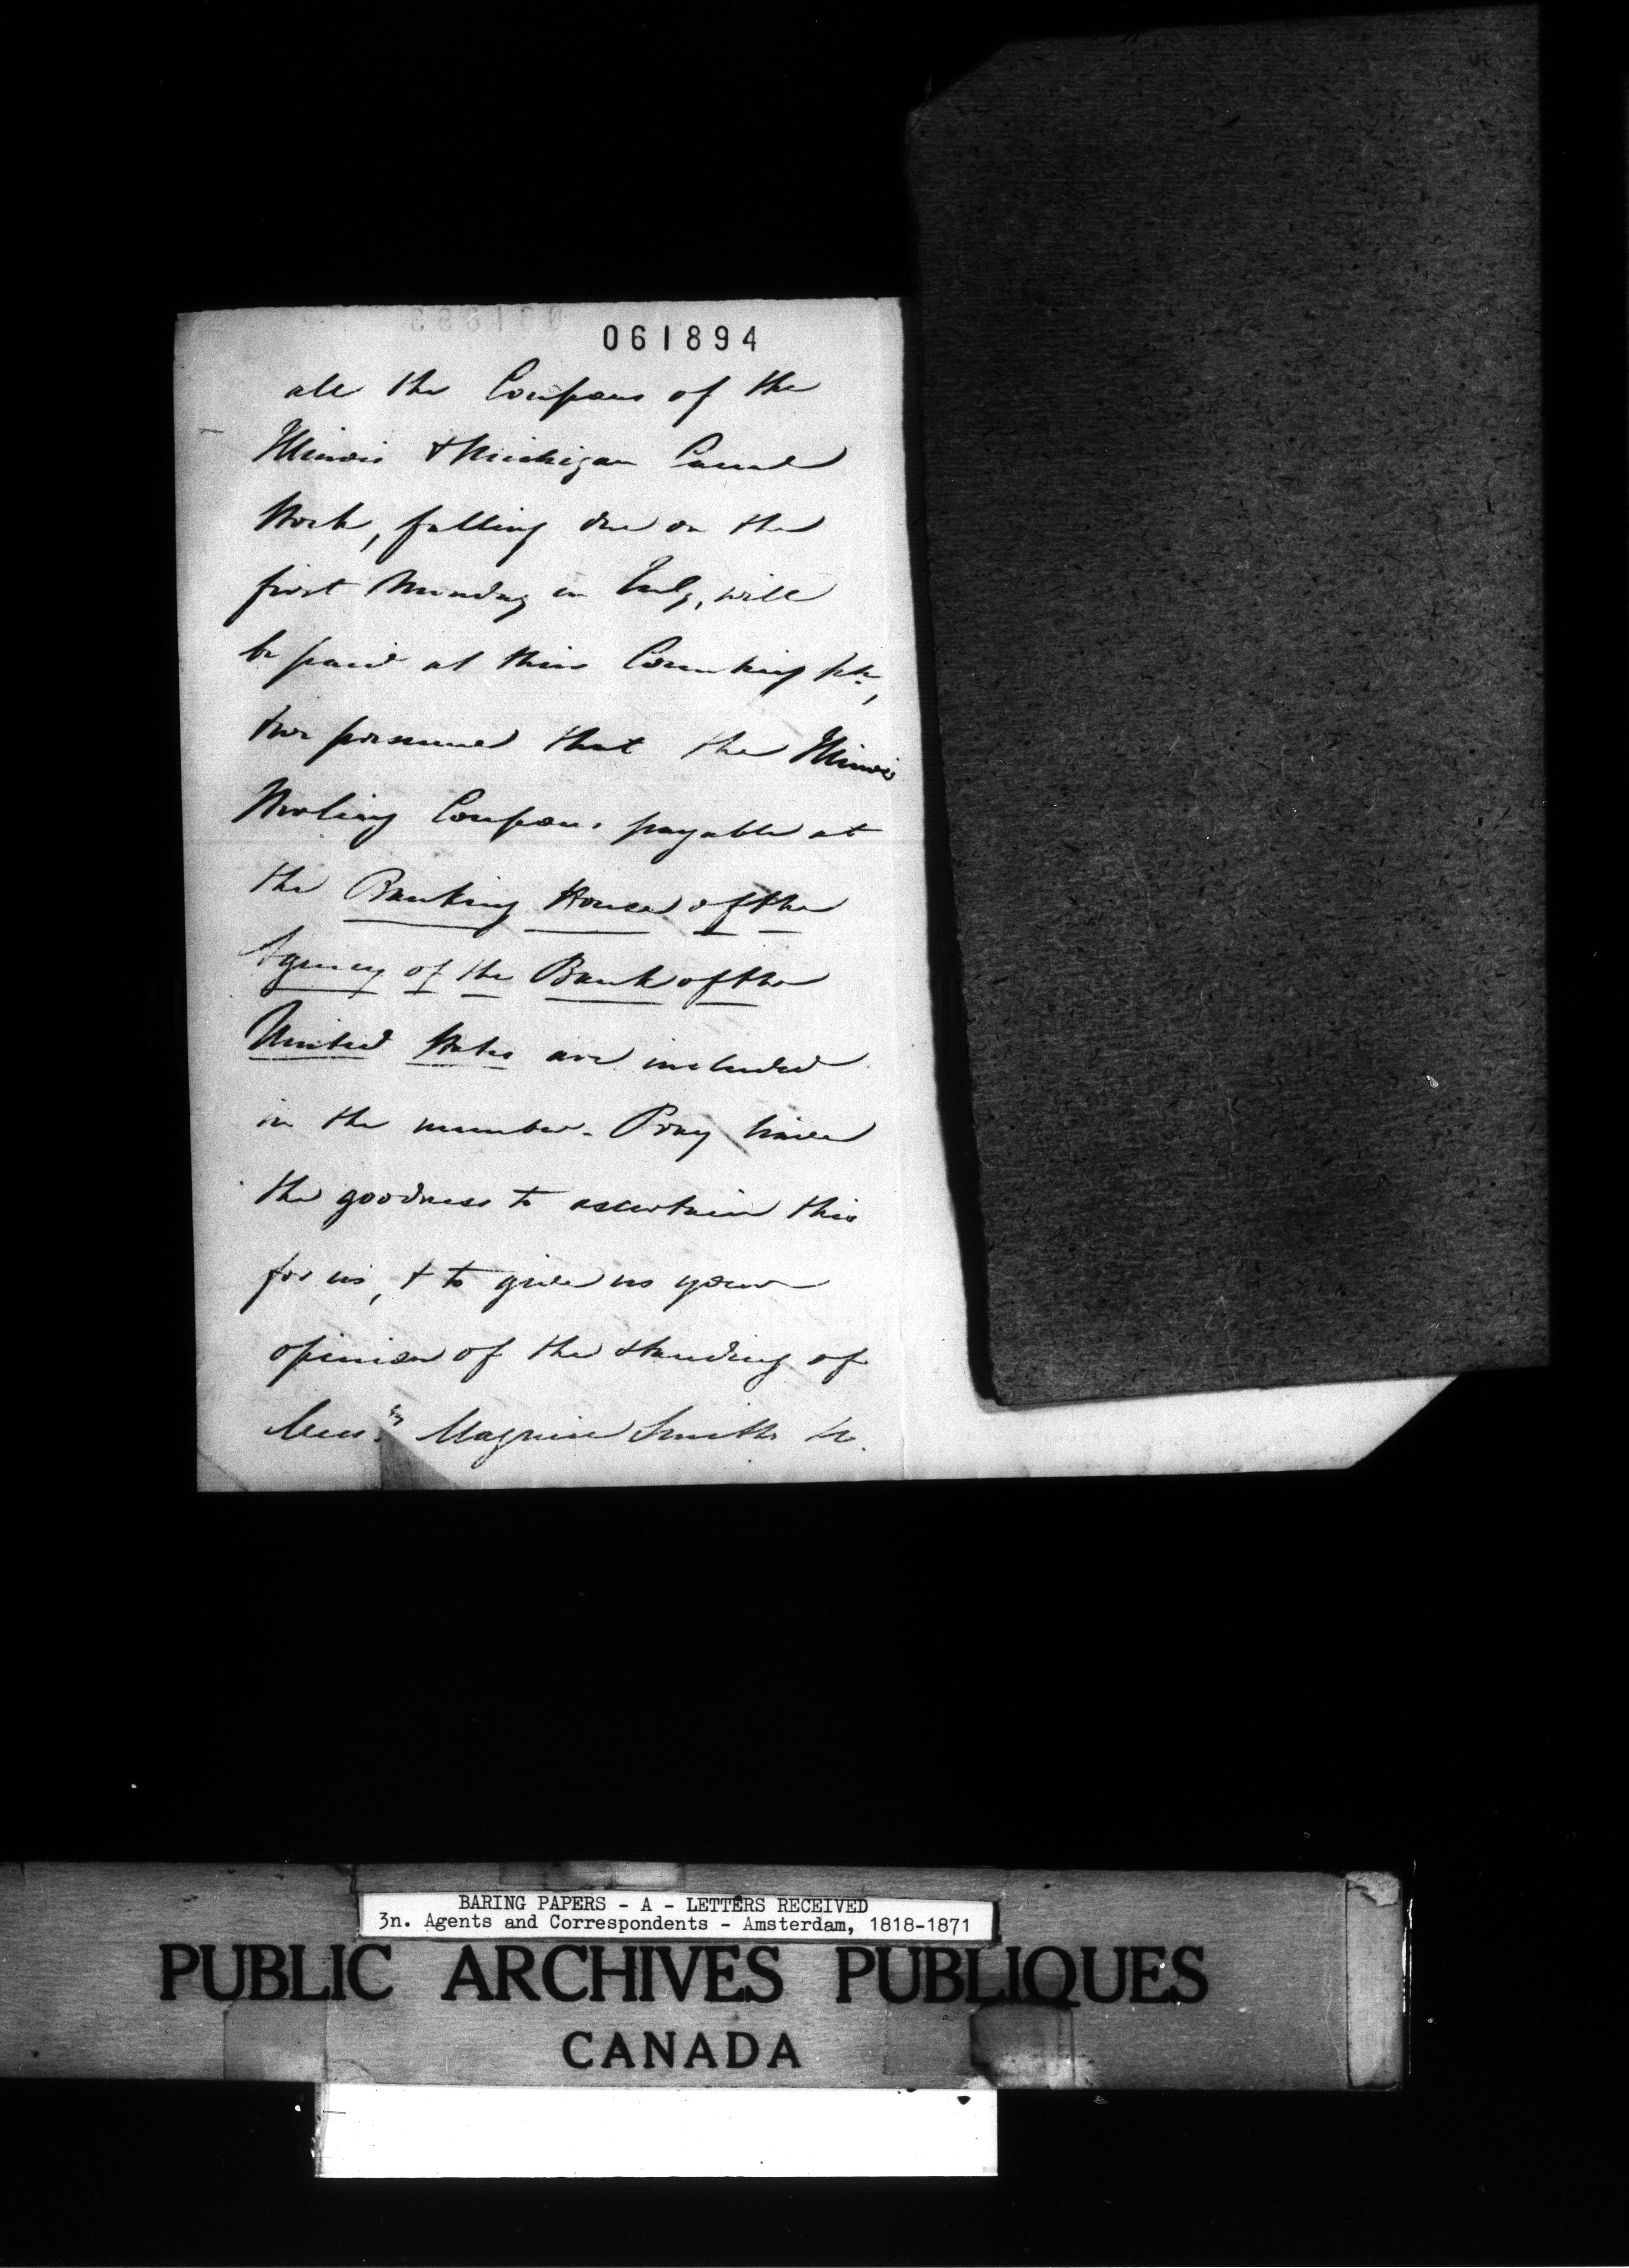 061894
all the Coupons of the
Illinois & Michigan Canal
Stock, falling due on the
first Monday in July, will
be paid at their Counting
& we presume that the Illinois
Sterling Coupons payable at
the Banking House of the
Agency of the Bank of the
United States are included
in the number. Pray have
the goodness to ascertain this
for us, & to give us your
opinion of the standing of
Mess.rs Magniac Smith &c.
BARING PAPERS - A - LETTERS RECEIVED
3n. Agents and Correspondents - Amsterdam, 1818-1871
PUBLIC ARCHIVES PUBLIQUES
CANADA